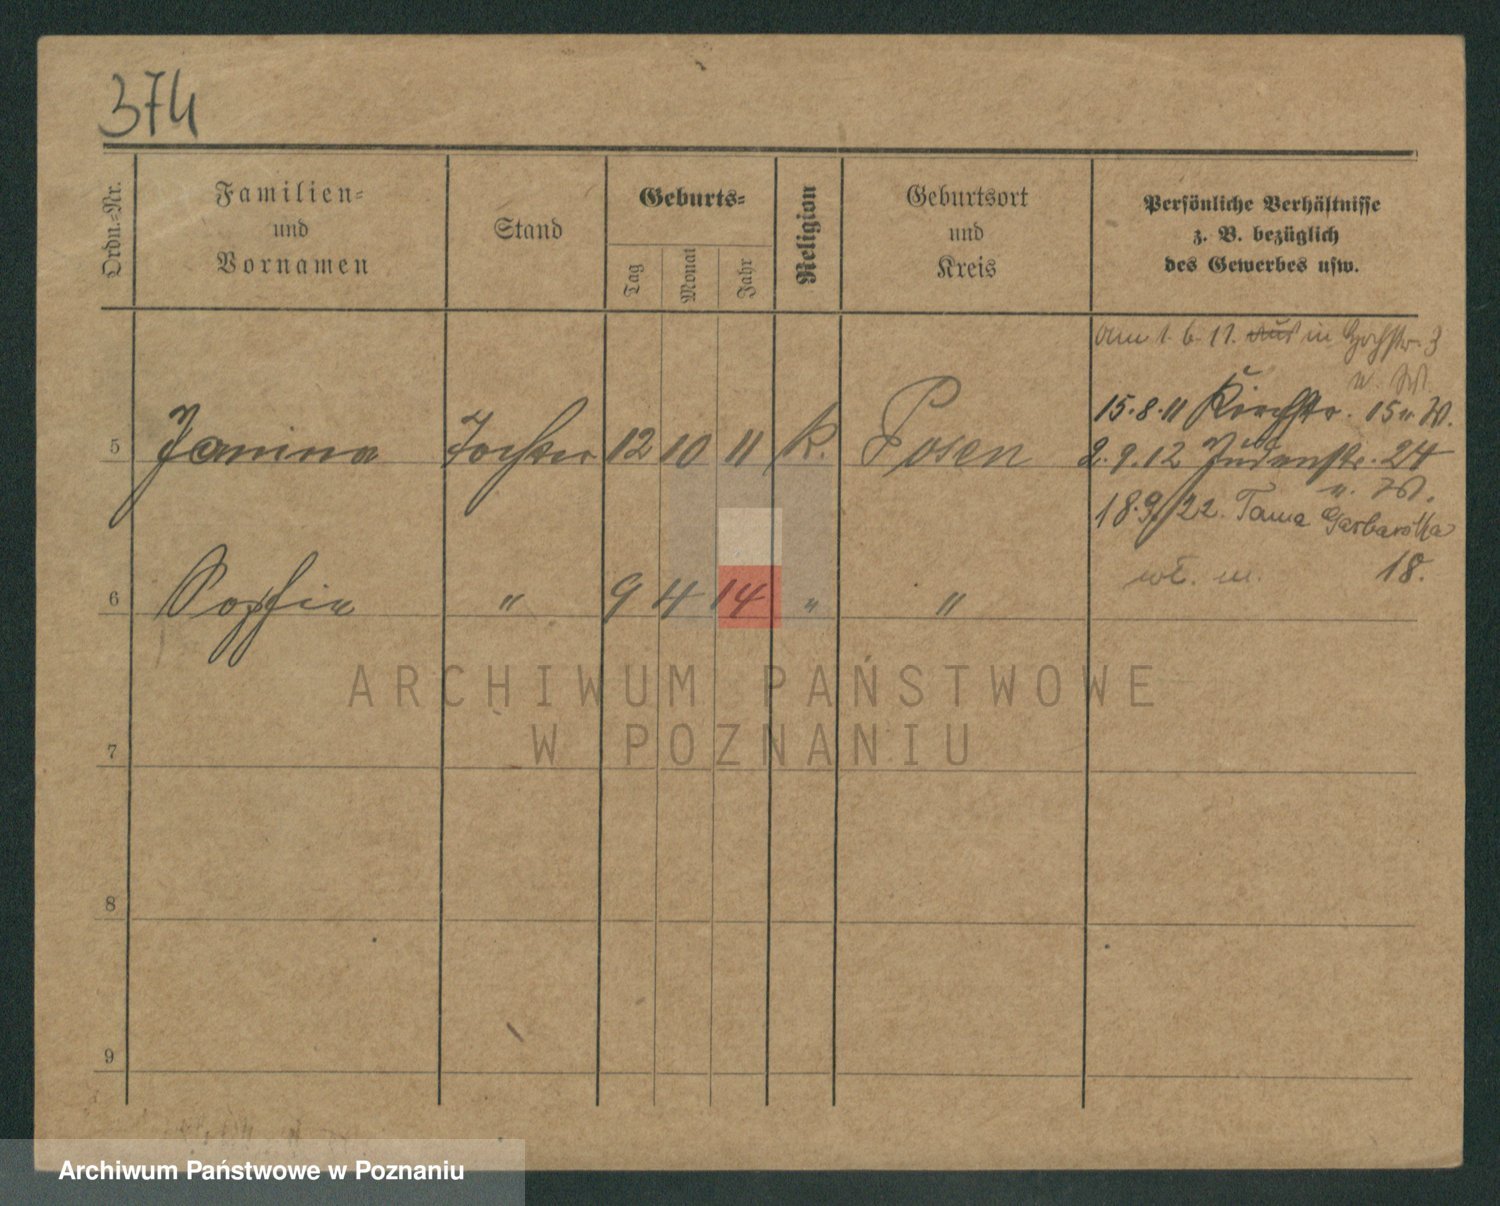 374
Ordn.-Nr.
Familien-
und
Vornamen
Stand
Geburts-
Tag
Monat
Jahr
Religion
Geburtsort
und
Kreis
Persönliche Verhältnisse
z. B. bezüglich
des Gewerbes usw.
am 1. 6. 11. aus in Hochstr. 3
u. W.
15.8.11 Kirchstr. 15 u. W.
5 Janina Tochter 12 10 11 k. Posen 2.9.12 Judenstr. 24
u. W.
18.9.22. Tama Garbarska
18.
wł. m.
6 Sophie " 9 4 14 " "
ARCHIWUM PAŃSTWOWE
W POZNANIU
7
8
9
Archiwum Państwowe w Poznaniu